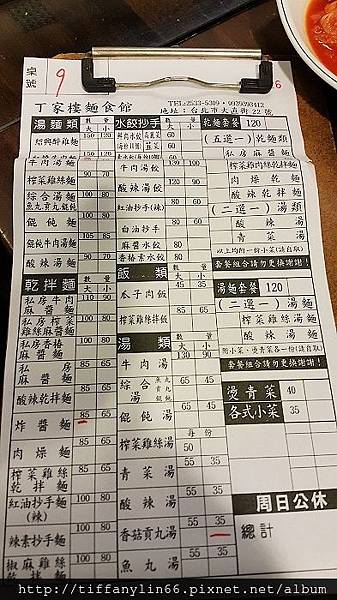 桌號 9
6
丁家棧麵食館
TEL:2533-5309
地址:台北市大直街22號
湯麵類 數量 大 小
紹興醉雞麵 150 120
牛肉湯麵
榨菜雞絲麵 90 70
綜合湯麵 魚丸貢丸餛飩 100 80
餛飩麵 100 80
餛飩牛肉湯麵
酸辣湯麵 90
乾拌麵 數量 大 小
私房牛肉麻醬麵 110 90
私房榨菜雞絲麻醬麵 100 80
私房香椿麻醬麵 100 80
私房麻醬麵 85 65
酸辣乾拌麵 100 80
炸醬麵 85 65
肉燥麵 85 65
榨菜雞絲乾拌麵 85 65
紅油抄手麵(辣) 100 80
辣素抄手麵 100 80
椒麻雞絲 100 80
水餃抄手 數量
60
60
牛肉湯餃 130 100
酸辣湯餃 120 90
紅油抄手(辣) 80
白油抄手
麻醬水餃 80
香椿素水餃 80
飯類 數量 大 小
瓜子肉飯 45 35
榨菜雞絲拌飯
湯類 數量 大 小
牛肉湯 130 90
綜合湯 魚丸 貢丸 餛飩 65 45
餛飩湯 65 45
每份
榨菜雞絲湯 50
青菜湯 55 35
酸辣湯 55 35
香菇貢丸湯 55 35
魚丸湯 55 35
乾麵套餐 120
(五選一)乾麵類
私房麻醬麵
榨菜雞肉絲乾拌麵
酸辣乾拌麵
(二選一)湯類
酸辣湯
青菜湯
以上均附一份小菜(請自取)
套餐組合請勿更換謝謝!
湯麵套餐 120
(二選一)湯麵
榨菜雞絲湯麵
酸辣湯麵
附小菜、燙青菜各一份(請自取)
套餐組合請勿更換謝謝!
燙青菜 40
各式小菜 35
周日公休
總計
http://tiffanylin66.pixnet.net/album